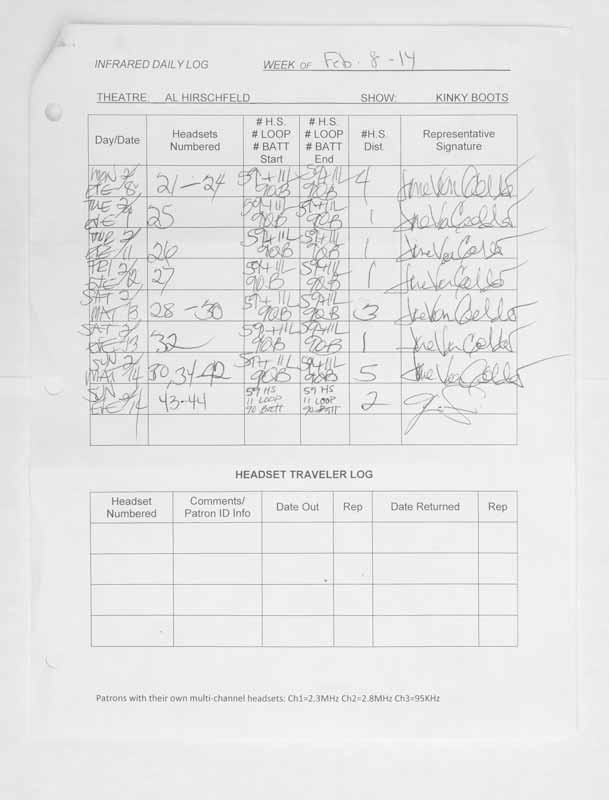 INFRARED DAILY LOG WEEK OF Feb. 8-14
THEATRE: AL HIRSCHFELD SHOW: KINKY BOOTS
Day/Date Headsets Numbered # H.S. # LOOP # BATT Start # H.S. # LOOP # BATT End #H.S. Dist. Representative Signature
MON 2/ EVE 8 21-24 59+11L 90B 59+11L 90B 4
TUE 2/ EVE 9 25 59+11L 90B 59+11L 90B 1
EVE 11 26 59+11L 90B 59+11L 90B 1
FRI 2/ EVE 12 27 59+11L 90B 59+11L 90B 1
SAT 2/ MAT 13 28-30 59+11L 90B 59+11L 90B 3
SAT 2/ EVE 13 32 59+11L 90B 59+11L 90B 1
SUN 2/ MAT 14 59+11L 90B 59+11L 90B 5
SUN 2/ EVE 14 43-44 59 HS 11 LOOP 90 BATT 59 HS 11 LOOP 90 BATT 2
HEADSET TRAVELER LOG
Headset Numbered Comments/ Patron ID Info Date Out Rep Date Returned Rep
Patrons with their own multi-channel headsets: Ch1=2.3MHz Ch2=2.8MHz Ch3=95KHz